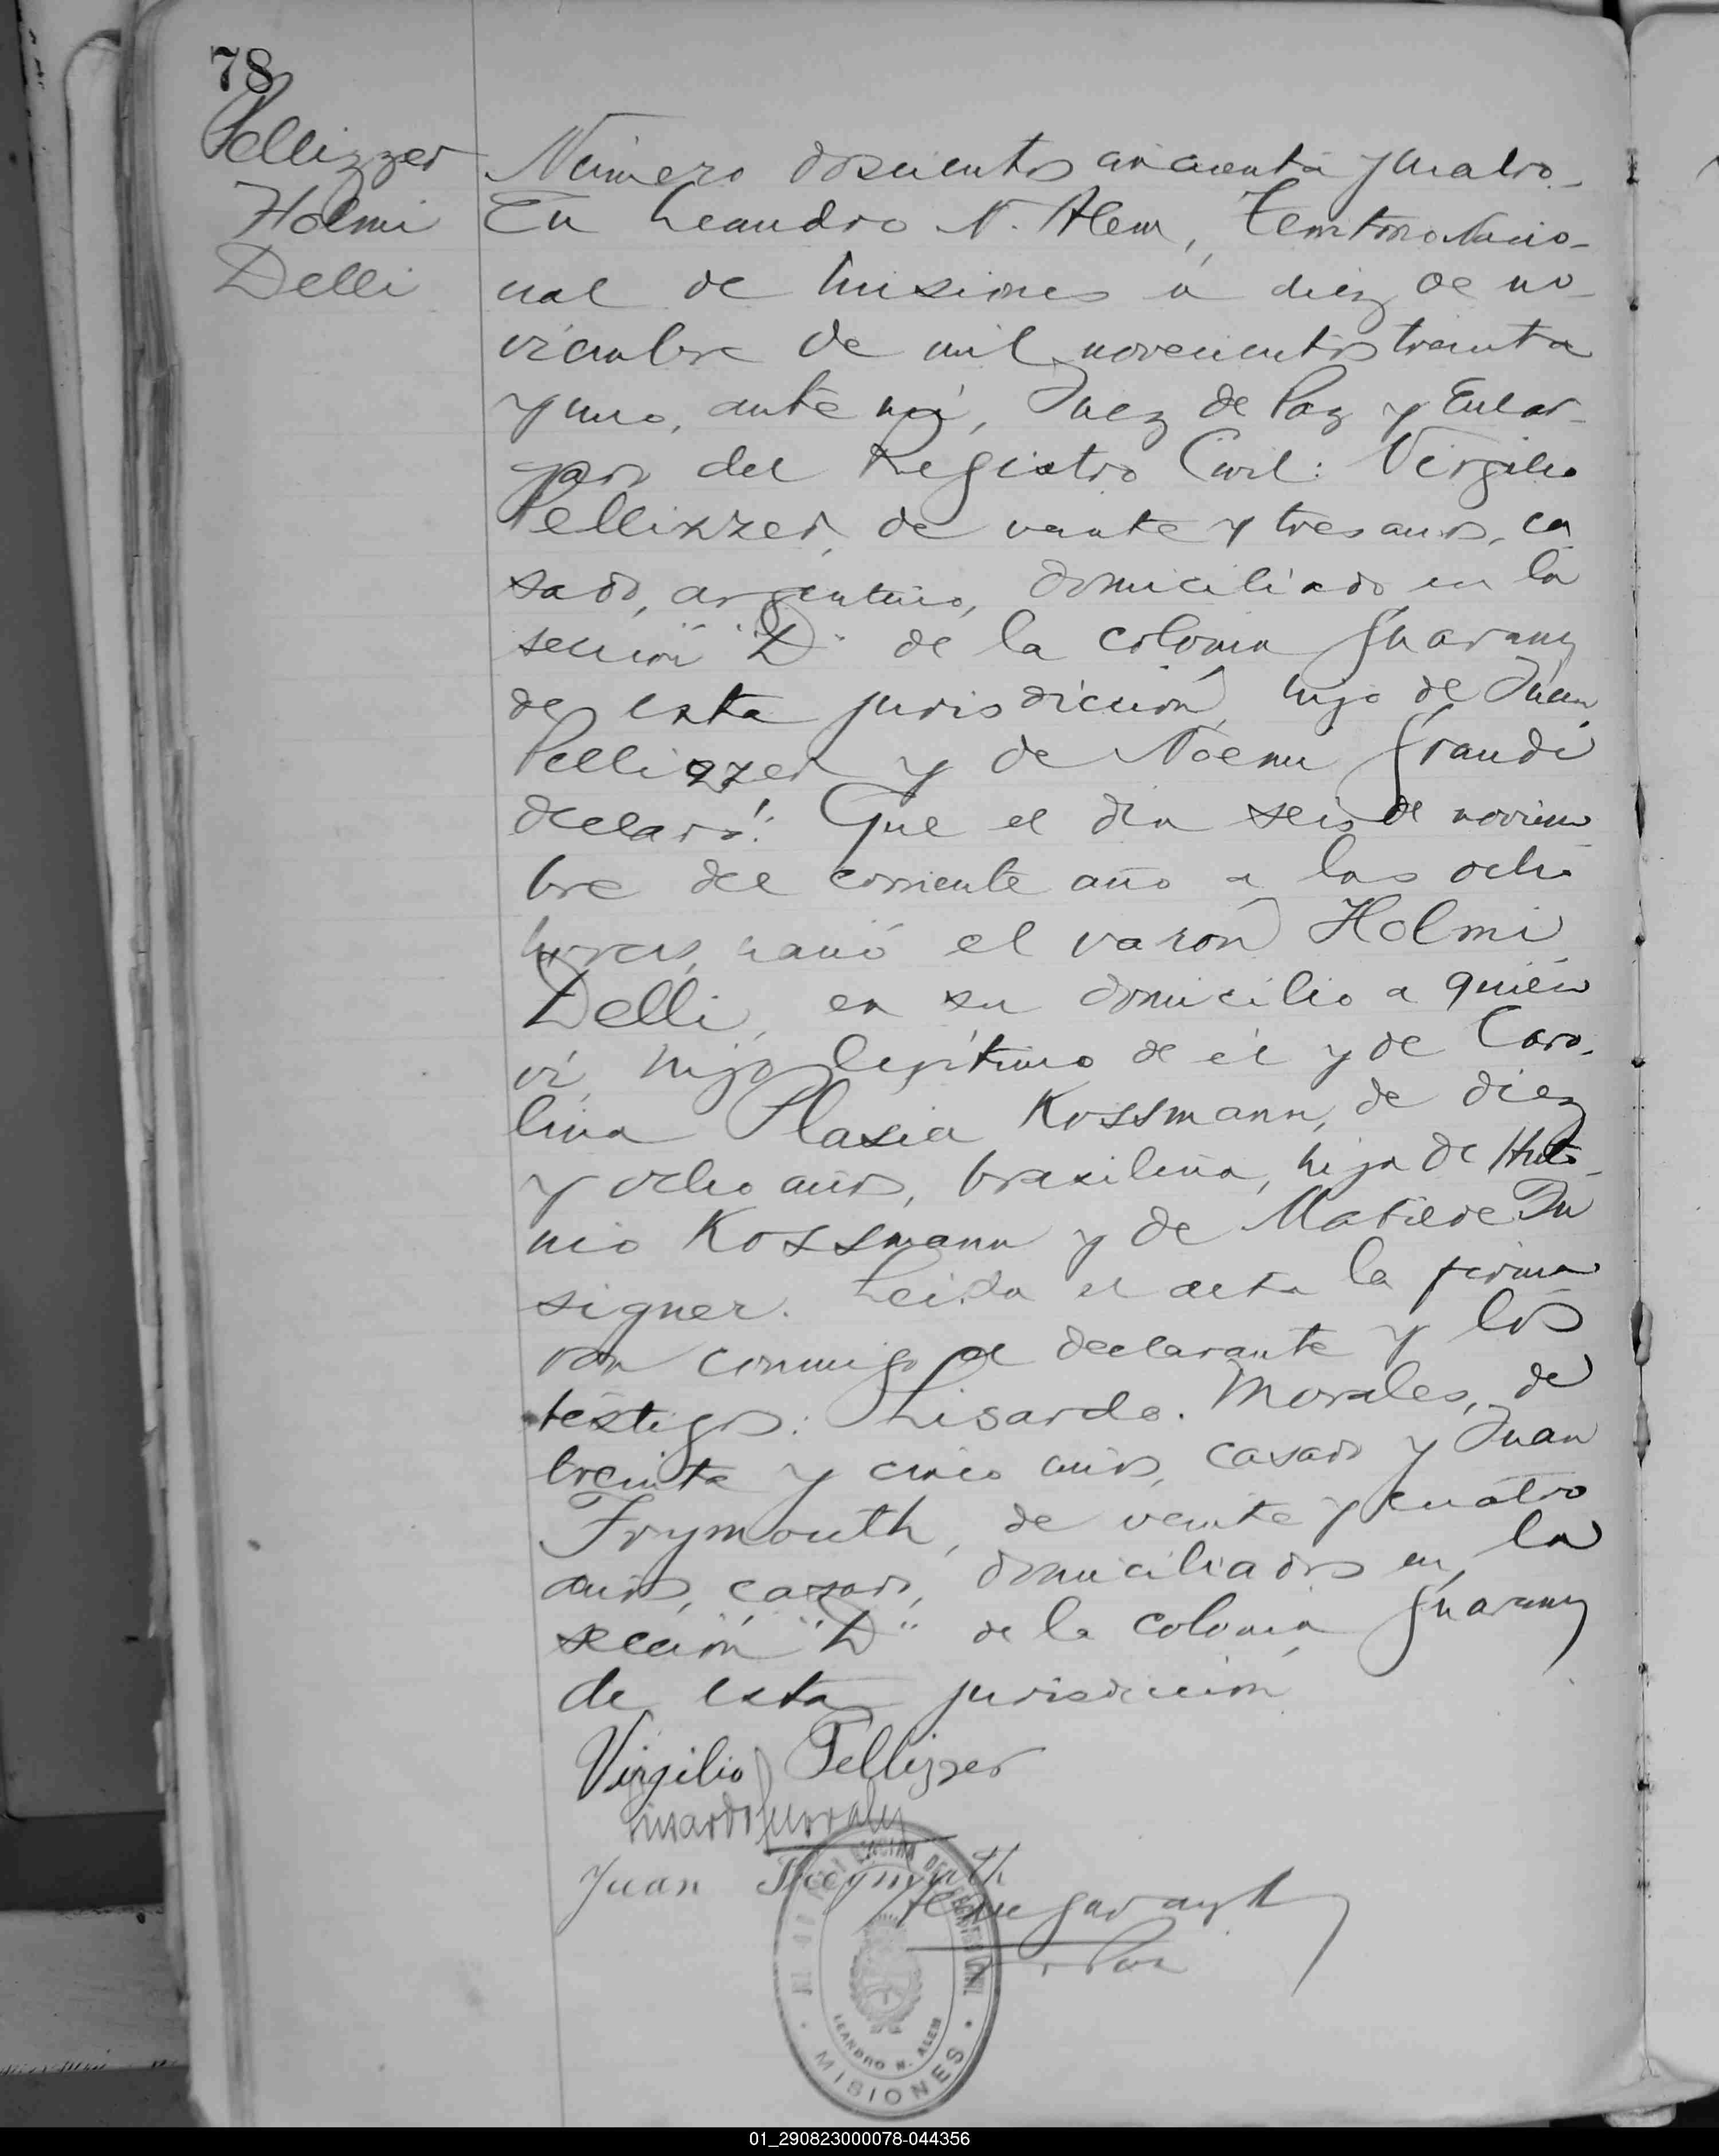 78
Pellizzer
Holmi
Delli
Número doscientos cincuenta y cuatro.
En Leandro N. Alem, Territorio Nacio-
nal de Misiones a diez de no-
viembre de mil novecientos treinta
y uno, ante mí, Juez de Paz y Encar-
gado del Registro Civil: Virgilio
Pellizzer, de veinte y tres años, ca
sado, argentino, domiciliado en la
sección "D" de la colonia Guarany
de esta jurisdicción, hijo de Juan
Pellizzer y de Noemi Grandi
declaró: Que el dia seis de noviem
bre del corriente año a las ocho
horas, nació el varón Holmi
Delli, en su domicilio a quién
ví, hijo legítimo de él y de Caro-
lina Plasia Kossmann, de diez
y ocho años, brasileña, hija de
nio Kossmann y de Matilde In
signer. Leida el acta la firma
ron conmigo el declarante y los
testigos: Lisardo. Morales, de
treinta y cinco años, casado y Juan
Frymouth, de veinte y cuatro
años, casado, domiciliados en la
sección "D" de la colonia Guarany
de esta jurisdicción
Virgilio Pellizzer
Lisardo Morales
Juan
REGISTRO CIVIL
LEANDRO N. ALEM
MISIONES
01_290823000078-044356